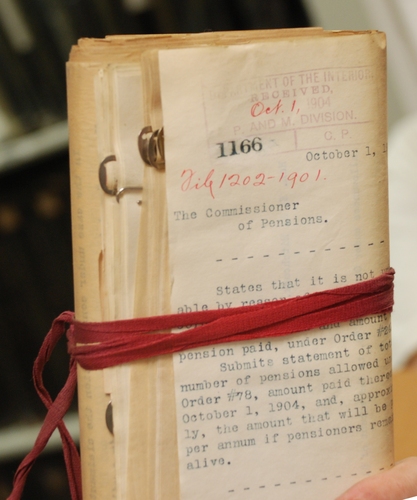 DEPARTMENT OF THE INTERIOR
RECEIVED,
Oct. 1, 1904
P. AND M. DIVISION.
1166
C. P.
October 1, 1
File 1202-1901.
The Commissioner
of Pensions.
States that it is not
able by reason of
and amount
pension paid, under Order
Submits statement of
number of pensions allowed
Order #78, amount paid
October 1, 1904, and,
ly, the amount that will be
per annum if pensioners
alive.